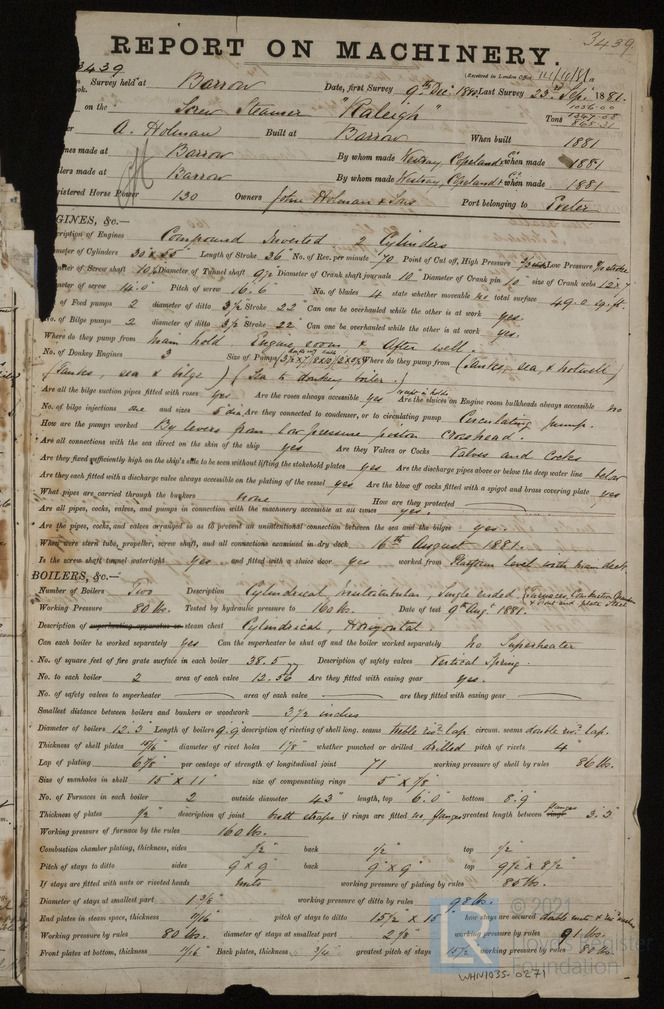 3439
REPORT ON MACHINERY.
3439
(Received in London Office
Survey held at Barrow Date, first Survey 9th Dec 1880 Last Survey 23rd Sep. 1881.
on the Screw Steamer "Raleigh" Tons 1036.00 1347.08 865.31
A. Holman Built at Barrow When built 1881
made at Barrow By whom made Westray, Copeland & Co when made 1881
made at Barrow By whom made Westray, Copeland & Co when made 1881
Registered Horse Power 130 Owners John Holman & Sons Port belonging to Exeter
ENGINES, &c.—
Description of Engines Compound Inverted 2 Cylinders
Diameter of Cylinders 30 x 55" Length of Stroke 36" No. of Rev. per minute 70 Point of Cut off, High Pressure Low Pressure
Diameter of Screw shaft 10 Diameter of Tunnel shaft 9½ Diameter of Crank shaft journals 10 Diameter of Crank pin 10 size of Crank webs 12 x 7
Diameter of screw 14.0" Pitch of screw 16.6 No. of blades 4 state whether moveable no total surface 49.0 sq. ft.
No. of Feed pumps 2 diameter of ditto 3½ Stroke 22" Can one be overhauled while the other is at work yes.
No. of Bilge pumps 2 diameter of ditto 3½ Stroke 22" Can one be overhauled while the other is at work yes.
Where do they pump from Main hold Engine room & After well.
No. of Donkey Engines 3 Size of Pumps Where do they pump from (Tanks, sea, & hotwell)
(Tanks, sea & bilge) (Sea to donkey boiler.)
Are all the bilge suction pipes fitted with roses yes Are the roses always accessible yes except in holds Are the sluices on Engine room bulkheads always accessible no
No. of bilge injections one and sizes 5" dia Are they connected to condenser, or to circulating pump Circulating pump.
How are the pumps worked By levers from low pressure piston crosshead.
Are all connections with the sea direct on the skin of the ship yes Are they Valves or Cocks Valves and Cocks
Are they fixed sufficiently high on the ship's side to be seen without lifting the stokehold plates yes Are the discharge pipes above or below the deep water line below
Are they each fitted with a discharge valve always accessible on the plating of the vessel yes Are the blow off cocks fitted with a spigot and brass covering plate yes
What pipes are carried through the bunkers none How are they protected
Are all pipes, cocks, valves, and pumps in connection with the machinery accessible at all times yes.
Are the pipes, cocks, and valves arranged so as to prevent an unintentional connection between the sea and the bilges yes.
When were stern tube, propeller, screw shaft, and all connections examined in dry dock 16th August 1881.
Is the screw shaft tunnel watertight yes and fitted with a sluice door yes worked from Platform level with main deck
BOILERS, &c.—
Number of Boilers Two Description Cylindrical, Multitubular, Single ended, Furnaces, Combustion Chamber & front end plate Steel
Working Pressure 80 lbs. Tested by hydraulic pressure to 160 lbs. Date of test 9th Augt. 1881.
Description of superheating apparatus or steam chest Cylindrical, Horizontal.
Can each boiler be worked separately yes Can the superheater be shut off and the boiler worked separately No Superheater
No. of square feet of fire grate surface in each boiler 38.5 Description of safety valves Vertical Spring.
No. to each boiler 2 area of each valve 12.56 Are they fitted with easing gear yes.
No. of safety valves to superheater area of each valve are they fitted with easing gear
Smallest distance between boilers and bunkers or woodwork 3½ inches
Diameter of boilers 12'.3" Length of boilers 9'.9" description of riveting of shell long. seams treble riv. lap circum. seams double riv. lap.
Thickness of shell plates diameter of rivet holes 1⅛" whether punched or drilled drilled pitch of rivets 4"
Lap of plating 6⅞" per centage of strength of longitudinal joint 71 working pressure of shell by rules 86 lbs.
Size of manholes in shell 15" x 11" size of compensating rings 5" x ⅞"
No. of Furnaces in each boiler 2 outside diameter 43" length, top 6'.0" bottom 8'.9"
Thickness of plates ½" description of joint butt straps if rings are fitted no flanges greatest length between rings flanges 3'.3"
Working pressure of furnace by the rules 160 lbs.
Combustion chamber plating, thickness, sides ½" back ½" top ½"
Pitch of stays to ditto sides 9" x 9" back 9" x 9" top 9½" x 8½"
If stays are fitted with nuts or riveted heads nuts working pressure of plating by rules 85 lbs.
Diameter of stays at smallest part 1⅜" working pressure of ditto by rules 98 lbs.
End plates in steam space, thickness 11/16" pitch of stays to ditto 15½" x 15" how stays are secured double nuts &
Working pressure by rules 80 lbs. diameter of stays at smallest part 2⅛" working pressure by rules 91 lbs.
Front plates at bottom, thickness 11/16" Back plates, thickness ¾" greatest pitch of stays 15½ working pressure by rules 80 lbs.
© 2021
Lloyd's Register
Foundation
WHN1035-0271